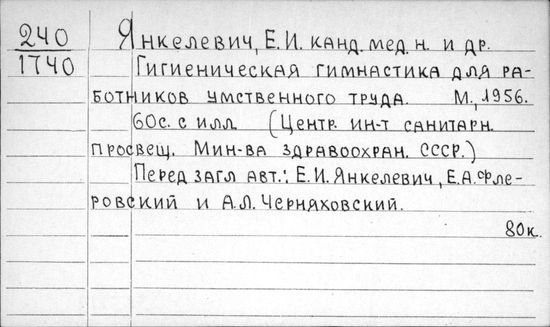 240
1740
Янкелевич, Е.И. канд. мед. н. и др.
Гигиеническая гимнастика для ра-
ботников умственного труда. М., 1956.
60с. с илл. (Центр. ин-т санитарн.
просвещ. Мин-ва здравоохран. СССР.)
Перед загл. авт.: Е.И. Янкелевич, Е.А. Фле-
ровский и А.Л. Черняховский.
80к.